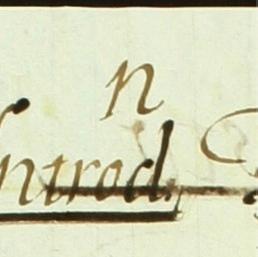 n
Introd.